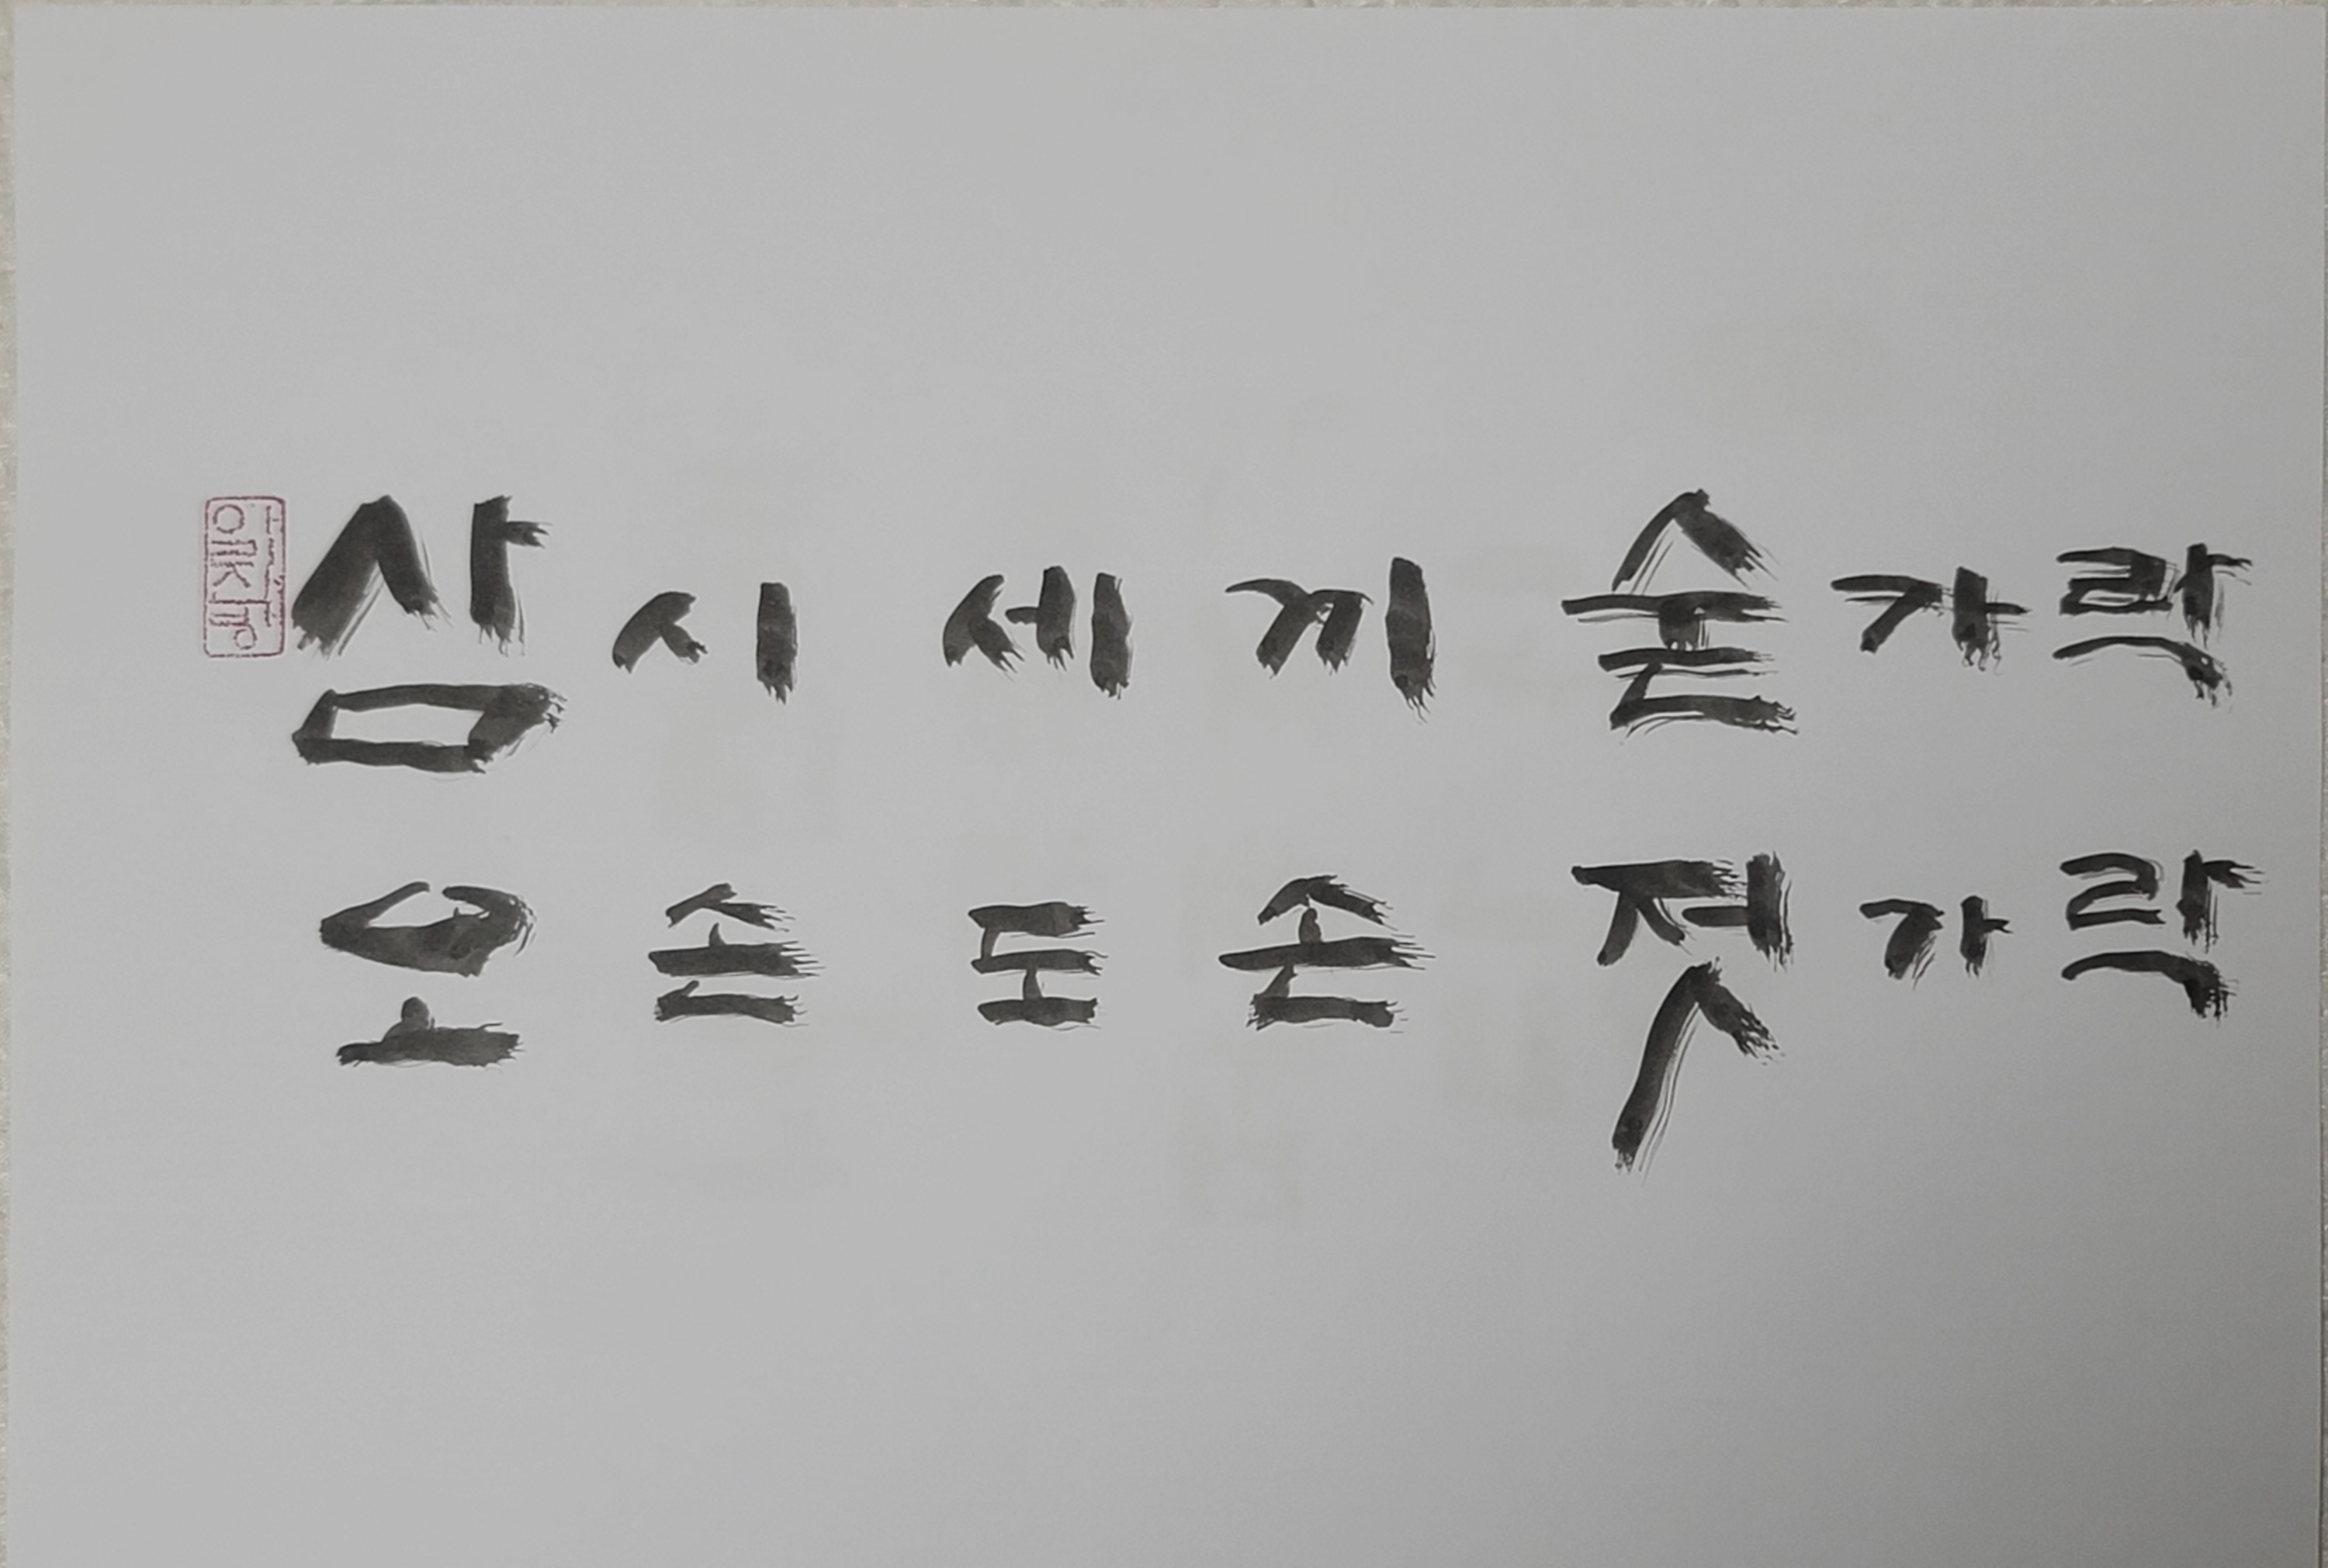 삼시세끼숟가락
오손도손젓가락